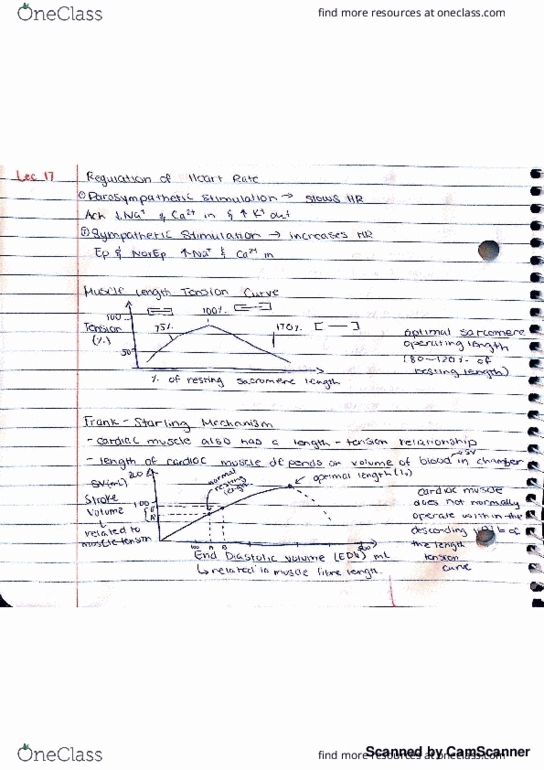 OneClass
find more resources at oneclass.com
Lec 17
Regulation of Heart Rate
① Parasympathetic Stimulation → slows HR
Ach ↓Na⁺ & Ca²⁺ in & ↑ K⁺ out
② Sympathetic Stimulation → increases HR
Ep & NorEp ↑Na⁺ & Ca²⁺ in
Muscle Length Tension Curve
100
Tension
(%)
50
75%
100%
170%
% of resting sacromere length
optimal sarcomere
operating length
(80-120% of
resting length)
Frank-Starling Mechanism
- cardiac muscle also has a length-tension relationship
- length of cardiac muscle depends on volume of blood in chamber
SV
SV(mL)
200
Stroke
Volume
100
related to
muscle tension
normal
resting
length
optimal length (l₀)
End Diastolic Volume (EDV) mL
↳ related in muscle fibre length
cardiac muscle
does not normally
operate within the
descending
the length
tension
curve
OneClass
find more resources at oneclass.com
Scanned by CamScanner